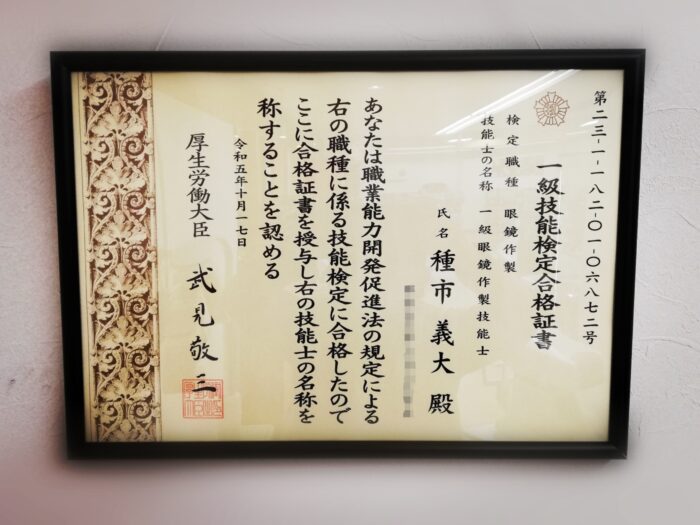 第二三-一-一八二-〇一-〇六八七二号
一級技能検定合格証書
検定職種 眼鏡作製
技能士の名称 一級眼鏡作製技能士
氏名 種市 義大 殿
あなたは職業能力開発促進法の規定による
右の職種に係る技能検定に合格したので
ここに合格証書を授与し右の技能士の名称を
称することを認める
令和五年十月一七日
厚生労働大臣 武見敬三